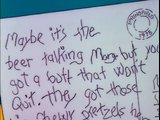 Maybe it's the
beer talking Marge but you
got a butt that won't
quit. they got those
chewy pretzels